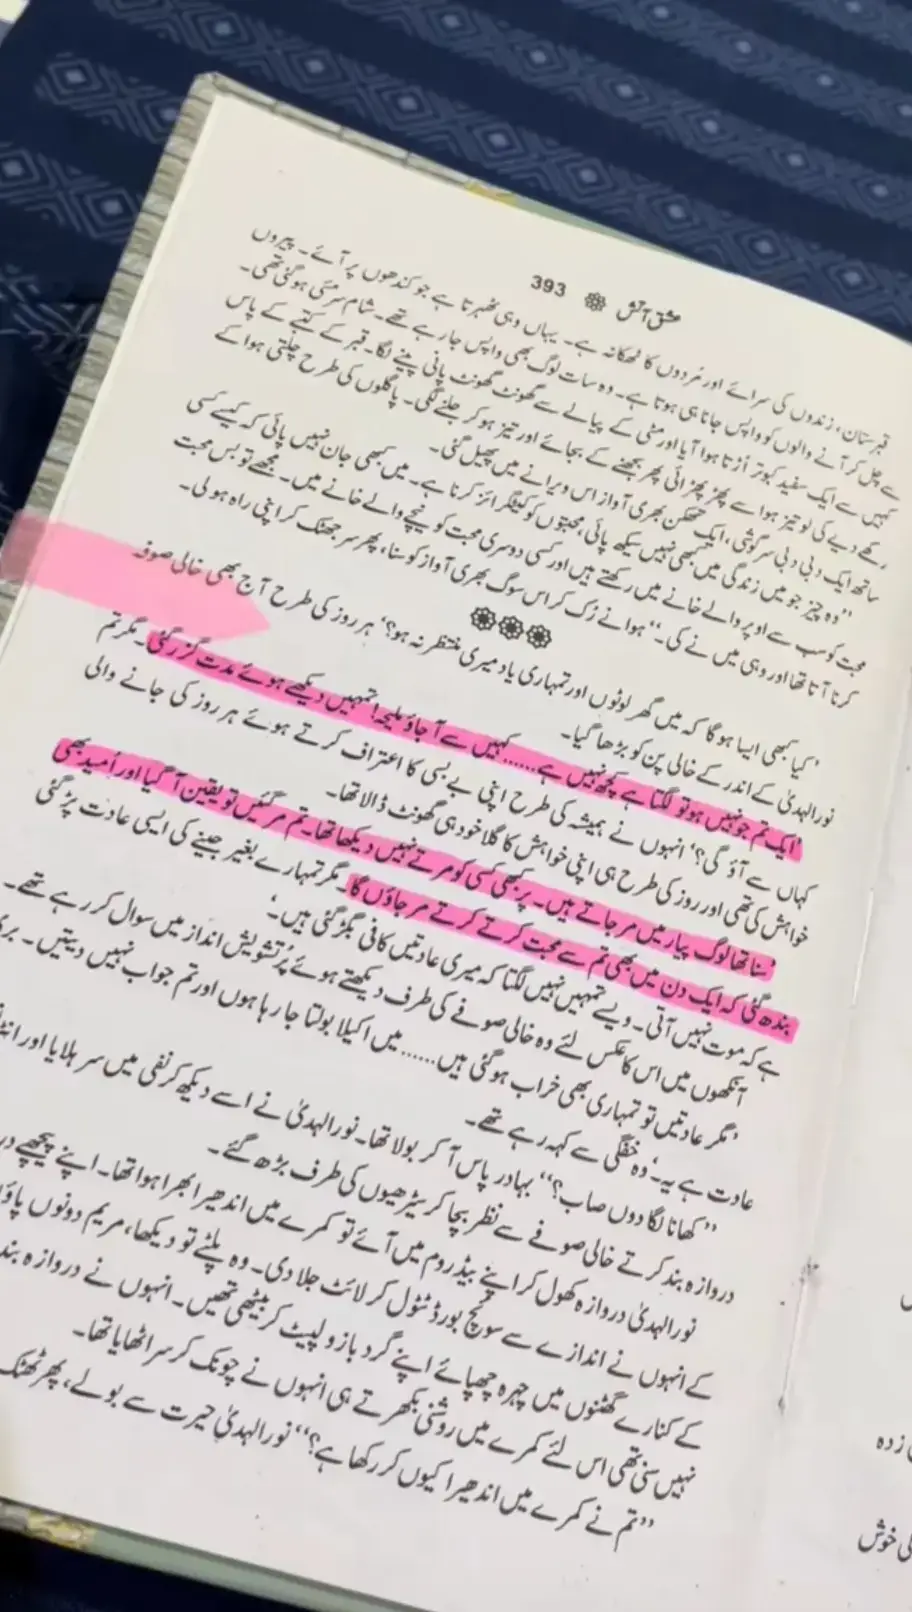 عشق آتش 393
قبرستان، زندوں کی سرائے اور مُردوں کا ٹھکانہ ہے۔ یہاں وہی ٹھہرتا ہے جو کندھوں پر آئے۔ پیروں
سے چل کر آنے والوں کو واپس جانا ہی ہوتا ہے۔ وہ سات لوگ بھی واپس جا رہے تھے۔ شام سرمئی ہوگئی تھی۔
کہیں سے ایک سفید کبوتر اُڑتا ہوا آیا اور مٹی کے پیالے سے گھونٹ گھونٹ پانی پینے لگا۔ قبر کے کتبے کے پاس
رکھے دیے کی لو تیز ہوا سے پھڑپھڑائی پھر بجھنے کے بجائے اور تیز ہو کر جلنے لگی۔ پاگلوں کی طرح چلتی ہوا کے
ساتھ ایک دبی دبی سرگوشی، ایک تھکن بھری آواز اس ویرانے میں پھیل گئی۔
''وہ چیز جو میں زندگی میں کبھی نہیں سیکھ پائی، محبتوں کو کیٹگرائز کرنا ہے۔ میں کبھی جان نہیں پائی کہ کیسے کسی
محبت کو سب سے اوپر والے خانے میں رکھتے ہیں اور کسی دوسری محبت کو نیچے والے خانے میں۔ مجھے تو بس محبت
کرنا آتا تھا اور وہی میں نے کی۔'' ہوا نے رُک کر اس سوگ بھری آواز کو سنا، پھر سر جھٹک کر اپنی راہ ہولی۔
'کیا کبھی ایسا ہوگا کہ میں گھر لوٹوں اور تمہاری یاد میری منتظر نہ ہو؟' ہر روز کی طرح آج بھی خالی صوفہ
نورالہدیٰ کے اندر کے خالی پن کو بڑھا گیا۔
'ایک تم جو نہیں ہو تو لگتا ہے کچھ نہیں ہے...... کہیں سے آ جاؤ ملیحہ! تمہیں دیکھے ہوئے مدت گزر گئی۔ مگر تم
کہاں سے آؤ گی؟' انہوں نے ہمیشہ کی طرح اپنی بے بسی کا اعتراف کرتے ہوئے ہر روز کی جانے والی
خواہش کی تھی اور روز کی طرح ہی اپنی خواہش کا گلا خود ہی گھونٹ ڈالا تھا۔
'سنا تھا لوگ پیار میں مر جاتے ہیں۔ پر کبھی کسی کو مرتے نہیں دیکھا تھا۔ تم مر گئیں تو یقین آ گیا اور اُمید بھی
بندھ گئی کہ ایک دن میں بھی تم سے محبت کرتے کرتے مر جاؤں گا۔ مگر تمہارے بغیر جینے کی ایسی عادت پڑ گئی
ہے کہ موت نہیں آتی۔ ویسے تمہیں نہیں لگتا کہ میری عادتیں کافی بگڑ گئی ہیں۔'
آنکھوں میں اس کا عکس لئے وہ خالی صوفے کی طرف دیکھتے ہوئے پُرتشویش انداز میں سوال کر رہے تھے۔
'مگر عادتیں تو تمہاری بھی خراب ہوگئی ہیں...... میں اکیلا بولتا جا رہا ہوں اور تم جواب نہیں دیتیں۔ بری
عادت ہے یہ۔' وہ خفگی سے کہہ رہے تھے۔
''کھانا لگا دوں صاب؟'' بہادر پاس آ کر بولا تھا۔ نورالہدیٰ نے اسے دیکھ کر نفی میں سر ہلایا اور
دروازہ بند کرتے خالی صوفے سے نظر بچا کر سیڑھیوں کی طرف بڑھ گئے۔
نورالہدیٰ دروازہ کھول کر اپنے بیڈ روم میں آئے تو کمرے میں اندھیرا بھرا ہوا تھا۔ اپنے پیچھے
کے انہوں نے اندازے سے سوئچ بورڈ ٹٹول کر لائٹ جلا دی۔ وہ پلٹے تو دیکھا، مریم دونوں پاؤں
کے کنارے گھٹنوں میں چہرہ چھپائے اپنے گرد بازو لپیٹ کر بیٹھی تھیں۔ انہوں نے دروازہ بند
نہیں سنی تھی اس لئے کمرے میں روشنی بکھرتے ہی انہوں نے چونک کر سر اٹھایا تھا۔
''تم نے کمرے میں اندھیرا کیوں کر رکھا ہے؟'' نورالہدیٰ حیرت سے بولے، پھر ٹھٹک
زدہ
خوش